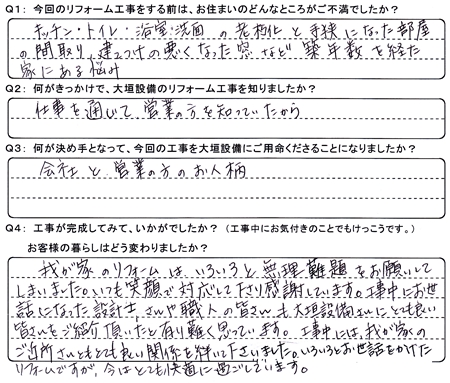 Q1: 今回のリフォーム工事をする前は、お住まいのどんなところがご不満でしたか?
キッチン・トイレ・浴室・洗面 の 老朽化 と 手狭になった部屋
の間取り、建てつけの悪くなった 窓など 築年数を経た
家にある悩み
Q2: 何がきっかけで、大垣設備のリフォーム工事を知りましたか?
仕事を通じて、営業の方を知っていたから
Q3: 何が決め手となって、今回の工事を大垣設備にご用命くださることになりましたか?
会社と営業の方のお人柄
Q4: 工事が完成してみて、いかがでしたか? (工事中にお気付きのことでもけっこうです。)
お客様の暮らしはどう変わりましたか?
我が家のリフォームは、いろいろと無理難題をお願いして
しまいました。いつも笑顔で対応して下さり感謝しています。工事中にお世
話になった設計士さんや職人の皆さんも大垣設備さんにとても良い
皆さんをご紹介頂いたと有り難く思っています。工事中には、我が家の
ご近所さんともとても良い関係を築いて下さいました。いろいろとお世話をかけた
リフォームですが、今はとても快適に過ごしています。